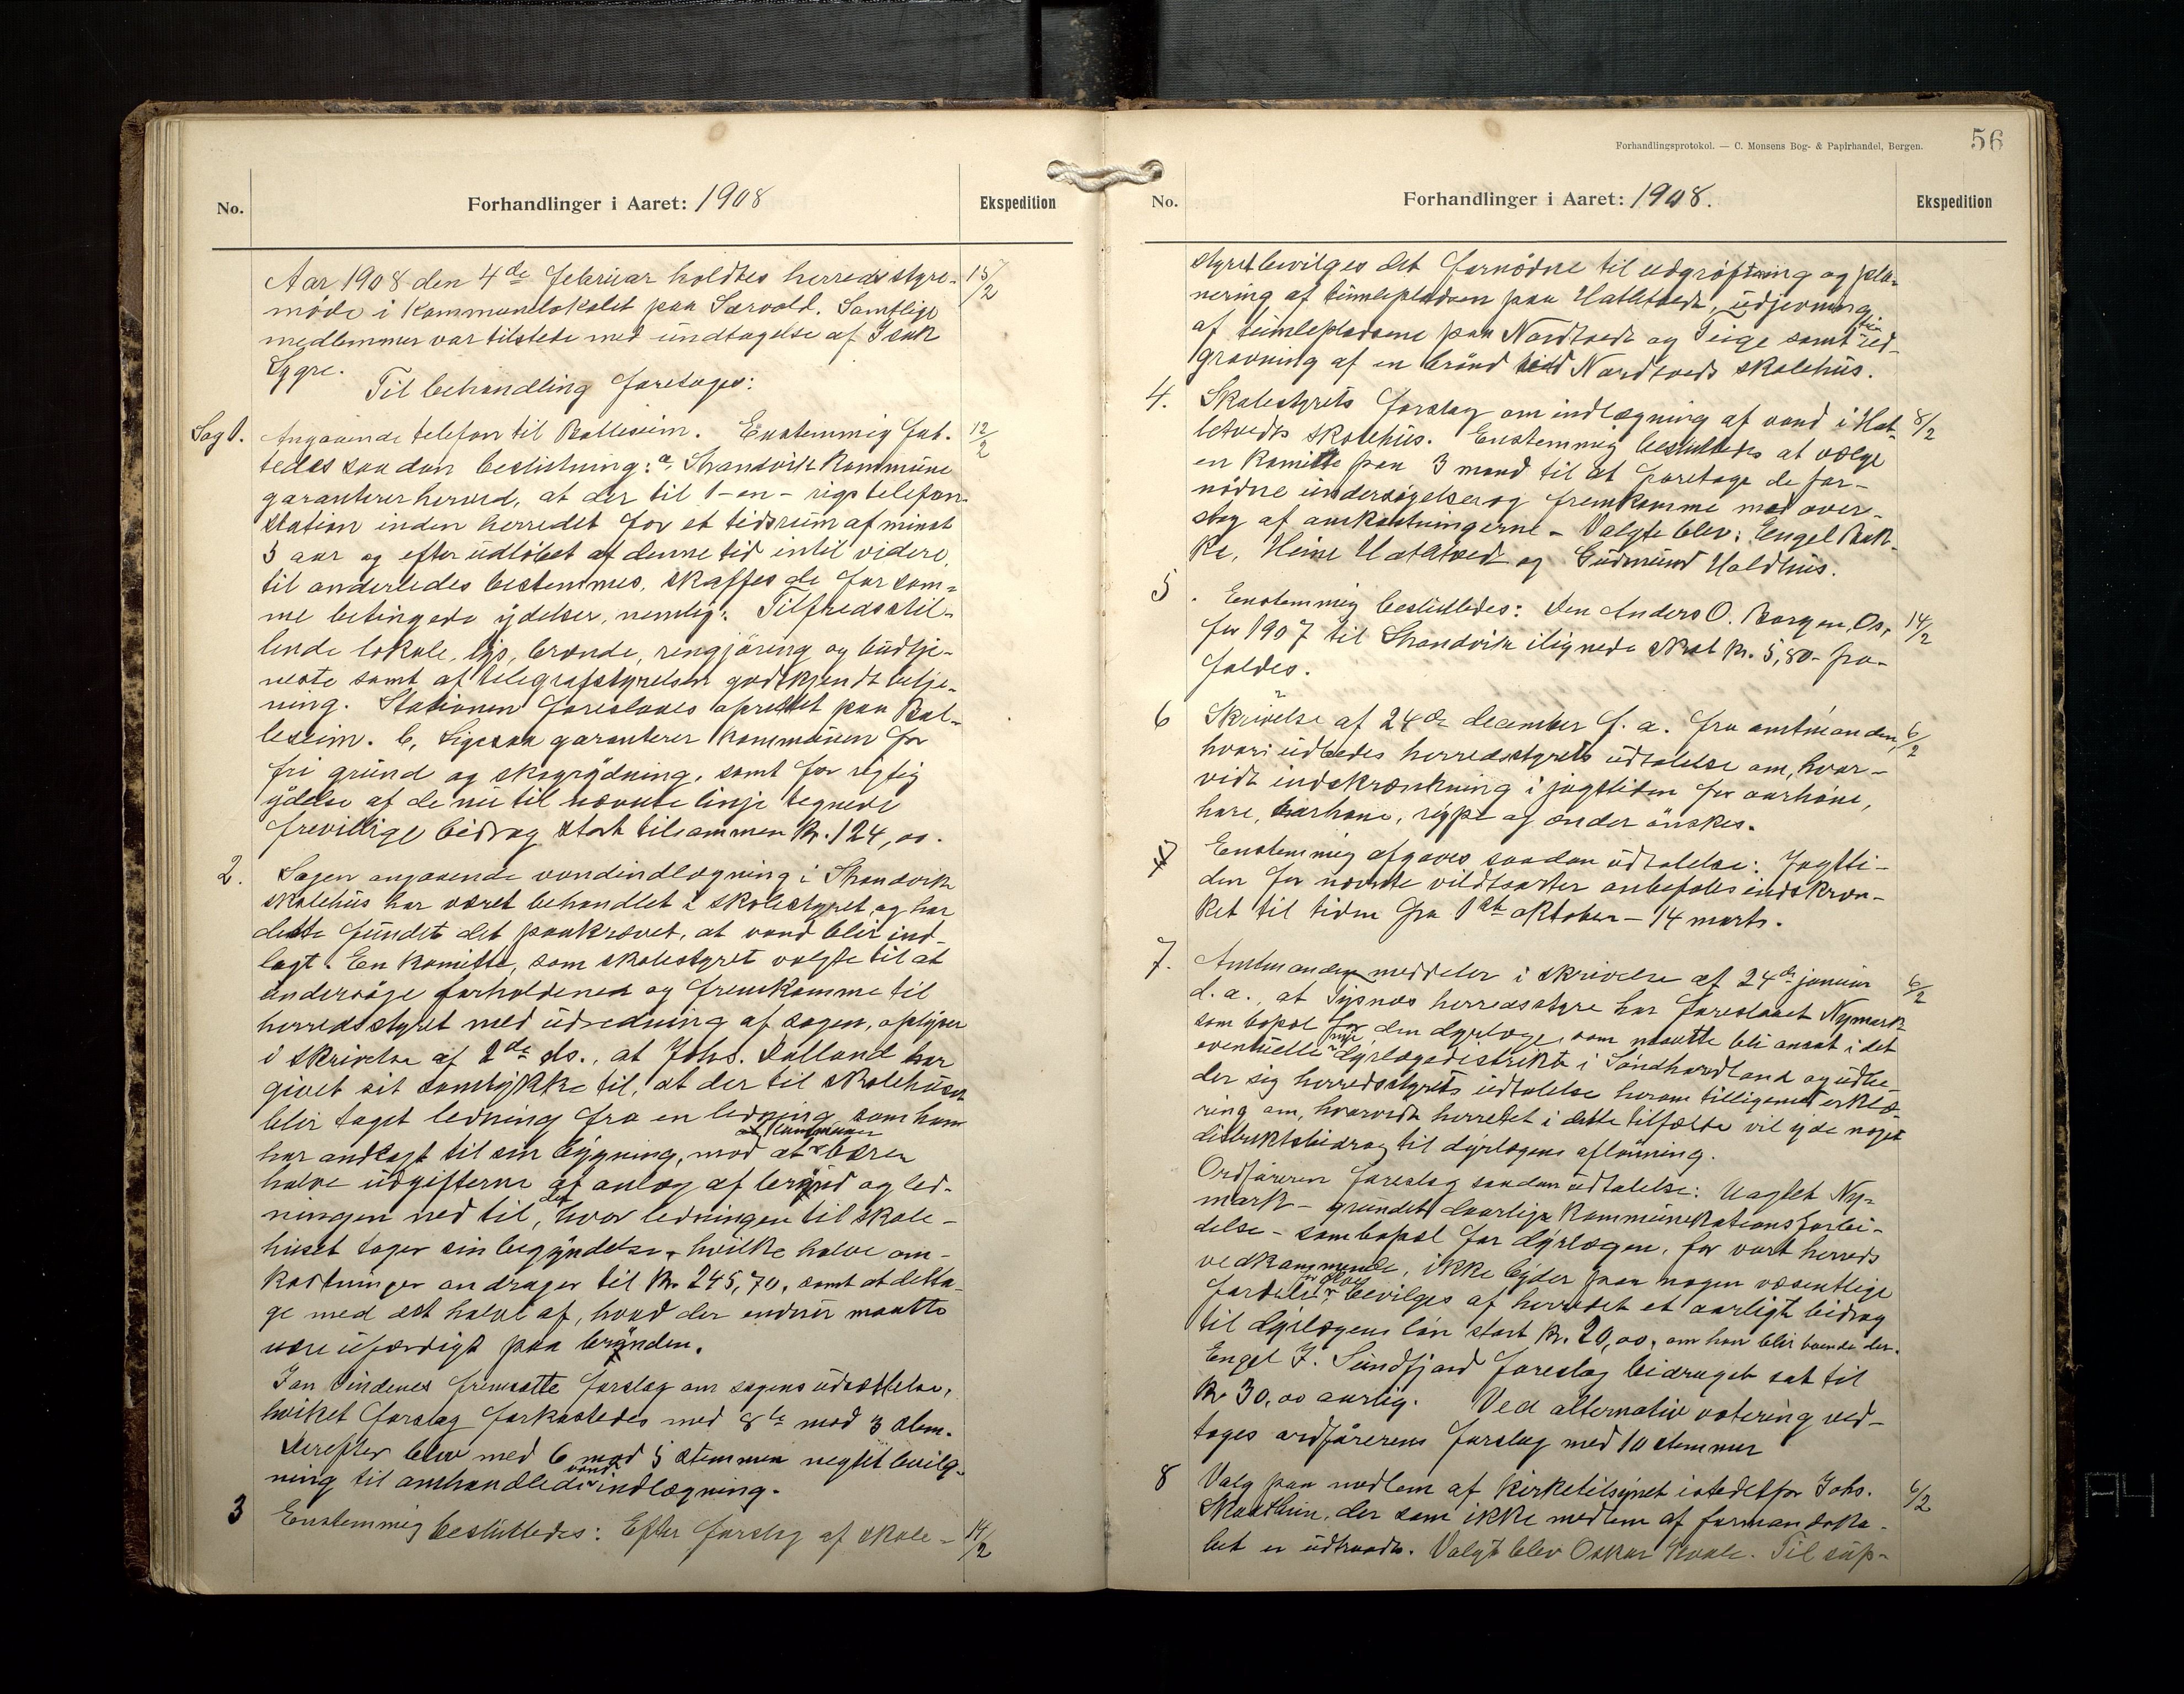 No.
Forhandlinger i Aaret: 1908
Ekspedition
Aar 1908 den 4de februar holdtes herredsstyre- 15/2
møde i kommunelokalet paa Sævold. Samtlige
medlemmer var tilstede med undtagelse af Isak
Lygre.
Til behandling foretoges:
Sag 1. Angaaende telefon til Balleseim. Enstemmig fat- 12/2
tedes saadan beslutning: a, Strandvik kommune
garanterer herved, at der til 1 - en - rigstelefon-
station inden herredet for et tidsrum af mindst
5 aar og efter udløbet af denne tid intil videre,
til anderledes bestemmes, skaffes de for som-
me betingede ydelser, nemlig: Tilfredsstil-
lende lokale, lys, brænde, rengjøring og budtje-
neste samt af telegrafstyrelsen godkjendt betje-
ning. Stationen foreslaaes oprettet paa Bal-
leseim. b, Ligesaa garanterer kommunen for
fri grund og skogrydning, samt for rigtig
ydelse af de nu til nævnte linje tegnede
frevillige bidrag stort tilsammen kr. 124,00.
2. Sagen angaaende vandindlægning i Strandvik
skolehus har været behandlet i skolestyret, og har
dette fundet det paakrævet, at vand blir ind-
lagt. En komitte, som skolestyret valgte til at
undersøge forholdene og fremkomme til
herredsstyret med udredning af sagen, oplyser
i skrivelse af 2de ds., at Johs. Dalland har
givet sit samtykke til, at der til skolehuset
blir taget ledning fra en ledning som ham
har andlagt til sin bygning, mod at kommunen bærer
halve udgifterne af anlæg af brønd og led-
ningen ned til, der hvor ledningen til skole-
huset tager sin begyndelse, hvilke halve om-
kostninger andrager til kr. 245,70, samt at delta-
ge med det halve af, hvad der endnu maatte
være ufærdigt paa brønden.
Jan Vindenes fremsatte forslag om sagens udsættelse,
hvilket forslag forkastedes med 8te mod 3 stem.
Derefter blev med 6 mod 5 stemmer negtet bevilg-
ning til omhandlede vandindlægning.
3 Enstemmig besluttedes: Efter forslag af skole- 14/2
Forhandlingsprotokol. — C. Monsens Bog- & Papirhandel, Bergen.
56
No.
Forhandlinger i Aaret: 1908.
Ekspedition
styret bevilges det fornødne til udgrøftning og pla-
nering af tumlepladsen paa Hatletvedt, udjevning
af tumlepladsene paa Nordtvedt og Teige samt ud-
gravning af en brønd ved Nordtvedt skolehus.
4. Skolestyrets forslag om indlægning af vand i Hat- 8/2
letvedts skolehus. Enstemmig besluttedes at vælge
en komitte paa 3 mand til at foretage de for-
nødne undersøgelser og fremkomme med over-
slag af omkostningerne - Valgte blev: Engel Bak-
ke, Heine Hatletvedt og Gudmund Haldhus.
5. Enstemmig besluttedes: Den Anders O. Borgen, Os, 14/2
for 1907 til Strandvik ilignede skat kr. 5,80 - fra-
faldes.
6 Skrivelse af 24de december f. a. fra amtmanden, 6/2
hvori udbedes herredsstyrets udtalelse om, hvor-
vidt indskrænkning i jagttiden for aarhøne,
hare, aarhane, rype og ænder ønskes.
Enstemmig afgaves saadan udtalelse: Jagtti-
den for nævnte vildtsorter anbefales indskræn-
ket til tiden fra 1ste oktober - 14 marts.
7. Amtmanden meddeler i skrivelse af 24de januar 6/2
d. a., at Tysnæs herredsstyre har foreslaaet Nymark
som bopæl for den dyrlæge, som maatte bli ansat i det
eventuelle nye dyrlægedistrikt i Søndhordland og udbe-
der sig herredsstyrets udtalelse herom tilligemed erklæ-
ring om, hvorvidt herredet i dette tilfælde vil yde noget
distriktsbidrag til dyrlægens aflønning.
Ordføreren foreslog saadan udtalelse: Uagtet Ny-
mark - grundet daarlige kommunikationsforbi-
delse - som bopæl for dyrlægen, for vort herreds
vedkommende, ikke byder paa nogen væsentlige
fordele, bevilges af herredet et aarligt bidrag
til dyrlægens løn stort kr. 20,00, om han blir boende der.
Engel J. Sundfjord foreslog bidraget sat til
kr 30,00 aarlig. Ved alternativ votering ved-
toges ordførerens forslag med 10 stemmer
8 Valg paa medlem af kirketilsynet istedetfor Johs. 6/2
Skaathun, der som ikke medlem af formandska-
bet er udtraadt. Valgt blev Oskar Kvale. Til sup-